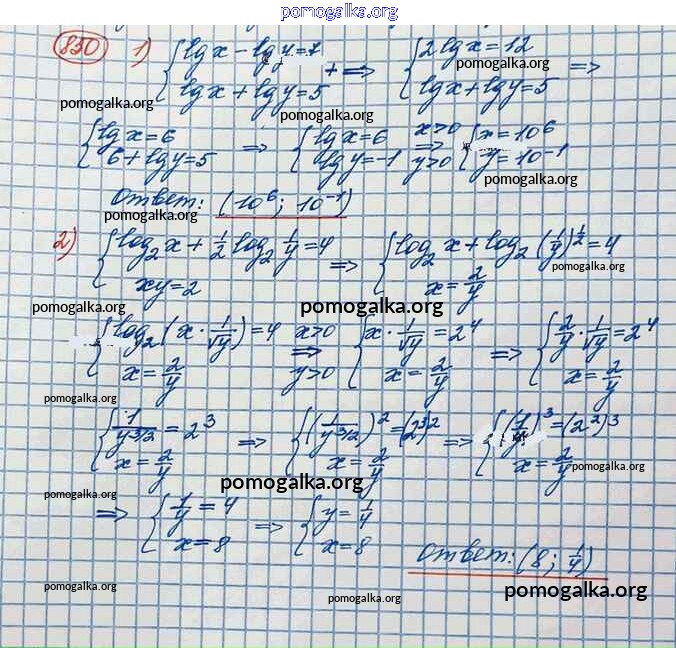 pomogalka.org
830 1) { lg x - lg y = 7 + => { 2 lg x = 12 =>
{ lg x + lg y = 5 { lg x + lg y = 5
pomogalka.org pomogalka.org pomogalka.org
{ lg x = 6 => { lg x = 6 x>0 => { x = 10^6
{ 6 + lg y = 5 { lg y = -1 y>0 { y = 10^-1
pomogalka.org
Ответ: (10^6; 10^-1)
pomogalka.org
2) { log_2 x + 1/2 log_2 1/y = 4 => { log_2 x + log_2 (1/y)^1/2 = 4
{ xy = 2 { x = 2/y
pomogalka.org
pomogalka.org pomogalka.org
{ log_2 (x · 1/√y) = 4 x>0 => { x · 1/√y = 2^4 => { 2/y · 1/√y = 2^4
{ x = 2/y y>0 { x = 2/y { x = 2/y
pomogalka.org
{ 1/y^3/2 = 2^3 => { (1/y^3/2)^2 = (2^3)^2 => { (1/y)^3 = (2^2)^3
{ x = 2/y { x = 2/y { x = 2/y
pomogalka.org pomogalka.org
pomogalka.org
=> { 1/y = 4 => { y = 1/4
{ x = 8 { x = 8
Ответ: (8; 1/4)
pomogalka.org pomogalka.org pomogalka.org